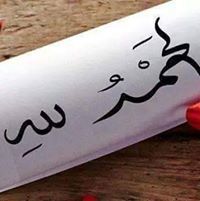 الحَمْدُ للهِ